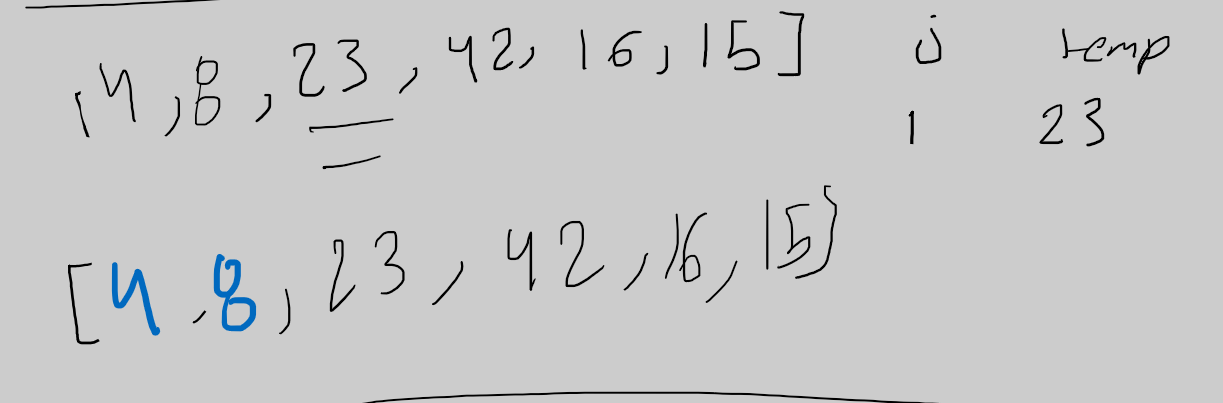 [4,8,23,42,16,15] j temp
1 23
[4,8,23,42,16,15]